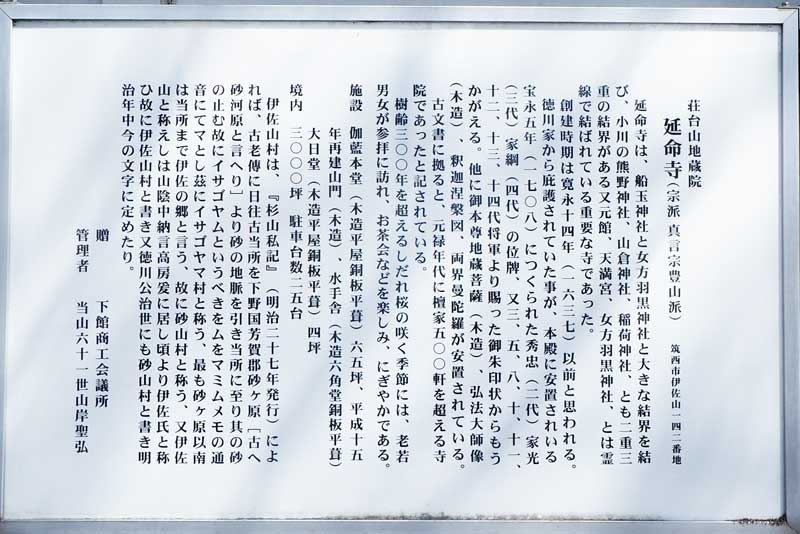 荘台山地蔵院
延命寺(宗派 真言宗豊山派) 筑西市伊佐山一四二番地
延命寺は、船玉神社と女方羽黒神社と大きな結界を結
び、小川の熊野神社、山倉神社、稲荷神社、とも二重三
重の結界がある又元館、天満宮、女方羽黒神社、とは霊
線で結ばれている重要な寺であった。
創建時期は寛永十四年(一六三七)以前と思われる。
徳川家から庇護されていた事が、本殿に安置されいる
宝永五年(一七〇八)につくられた秀忠(二代)家光
(三代)家綱(四代)の位牌、又三、五、八、十、十一、
十二、十三、十四代将軍より賜った御朱印状からもう
かがえる。他に御本尊地蔵菩薩(木造)、弘法大師像
(木造)、釈迦涅槃図、両界曼陀羅が安置されている。
古文書に拠ると、元禄年代に檀家五〇〇軒を超える寺
院であったと記されている。
樹齢三〇〇年を超えるしだれ桜の咲く季節には、老若
男女が参拝に訪れ、お茶会などを楽しみ、にぎやかである。
施設 伽藍本堂(木造平屋銅板平葺)六五坪、平成十五
年再建山門(木造)、水手舎(木造六角堂銅板平葺)
大日堂(木造平屋銅板平葺)四坪
境内 三〇〇〇坪 駐車台数二五台
伊佐山村は、『杉山私記』(明治二十七年発行)によ
れば、古老傳に日往古当所を下野国芳賀郡砂ヶ原[古へ
砂河原と言へり」より砂の地脈を引き当所に至り其の砂
の止む故にイサゴヤムというべきをムをマミムメモの通
音にてマとし茲にイサゴヤマ村と称う、最も砂ヶ原以南
は当所まで伊佐の郷と言う、故に砂山村と称う、又伊佐
山と称えしは山陰中納言高房爰に居し頃より伊佐氏と称
ひ故に伊佐山村と書き又徳川公治世にも砂山村と書き明
治年中今の文字に定めたり。
贈 下館商工会議所
管理者 当山六十一世山岸聖弘